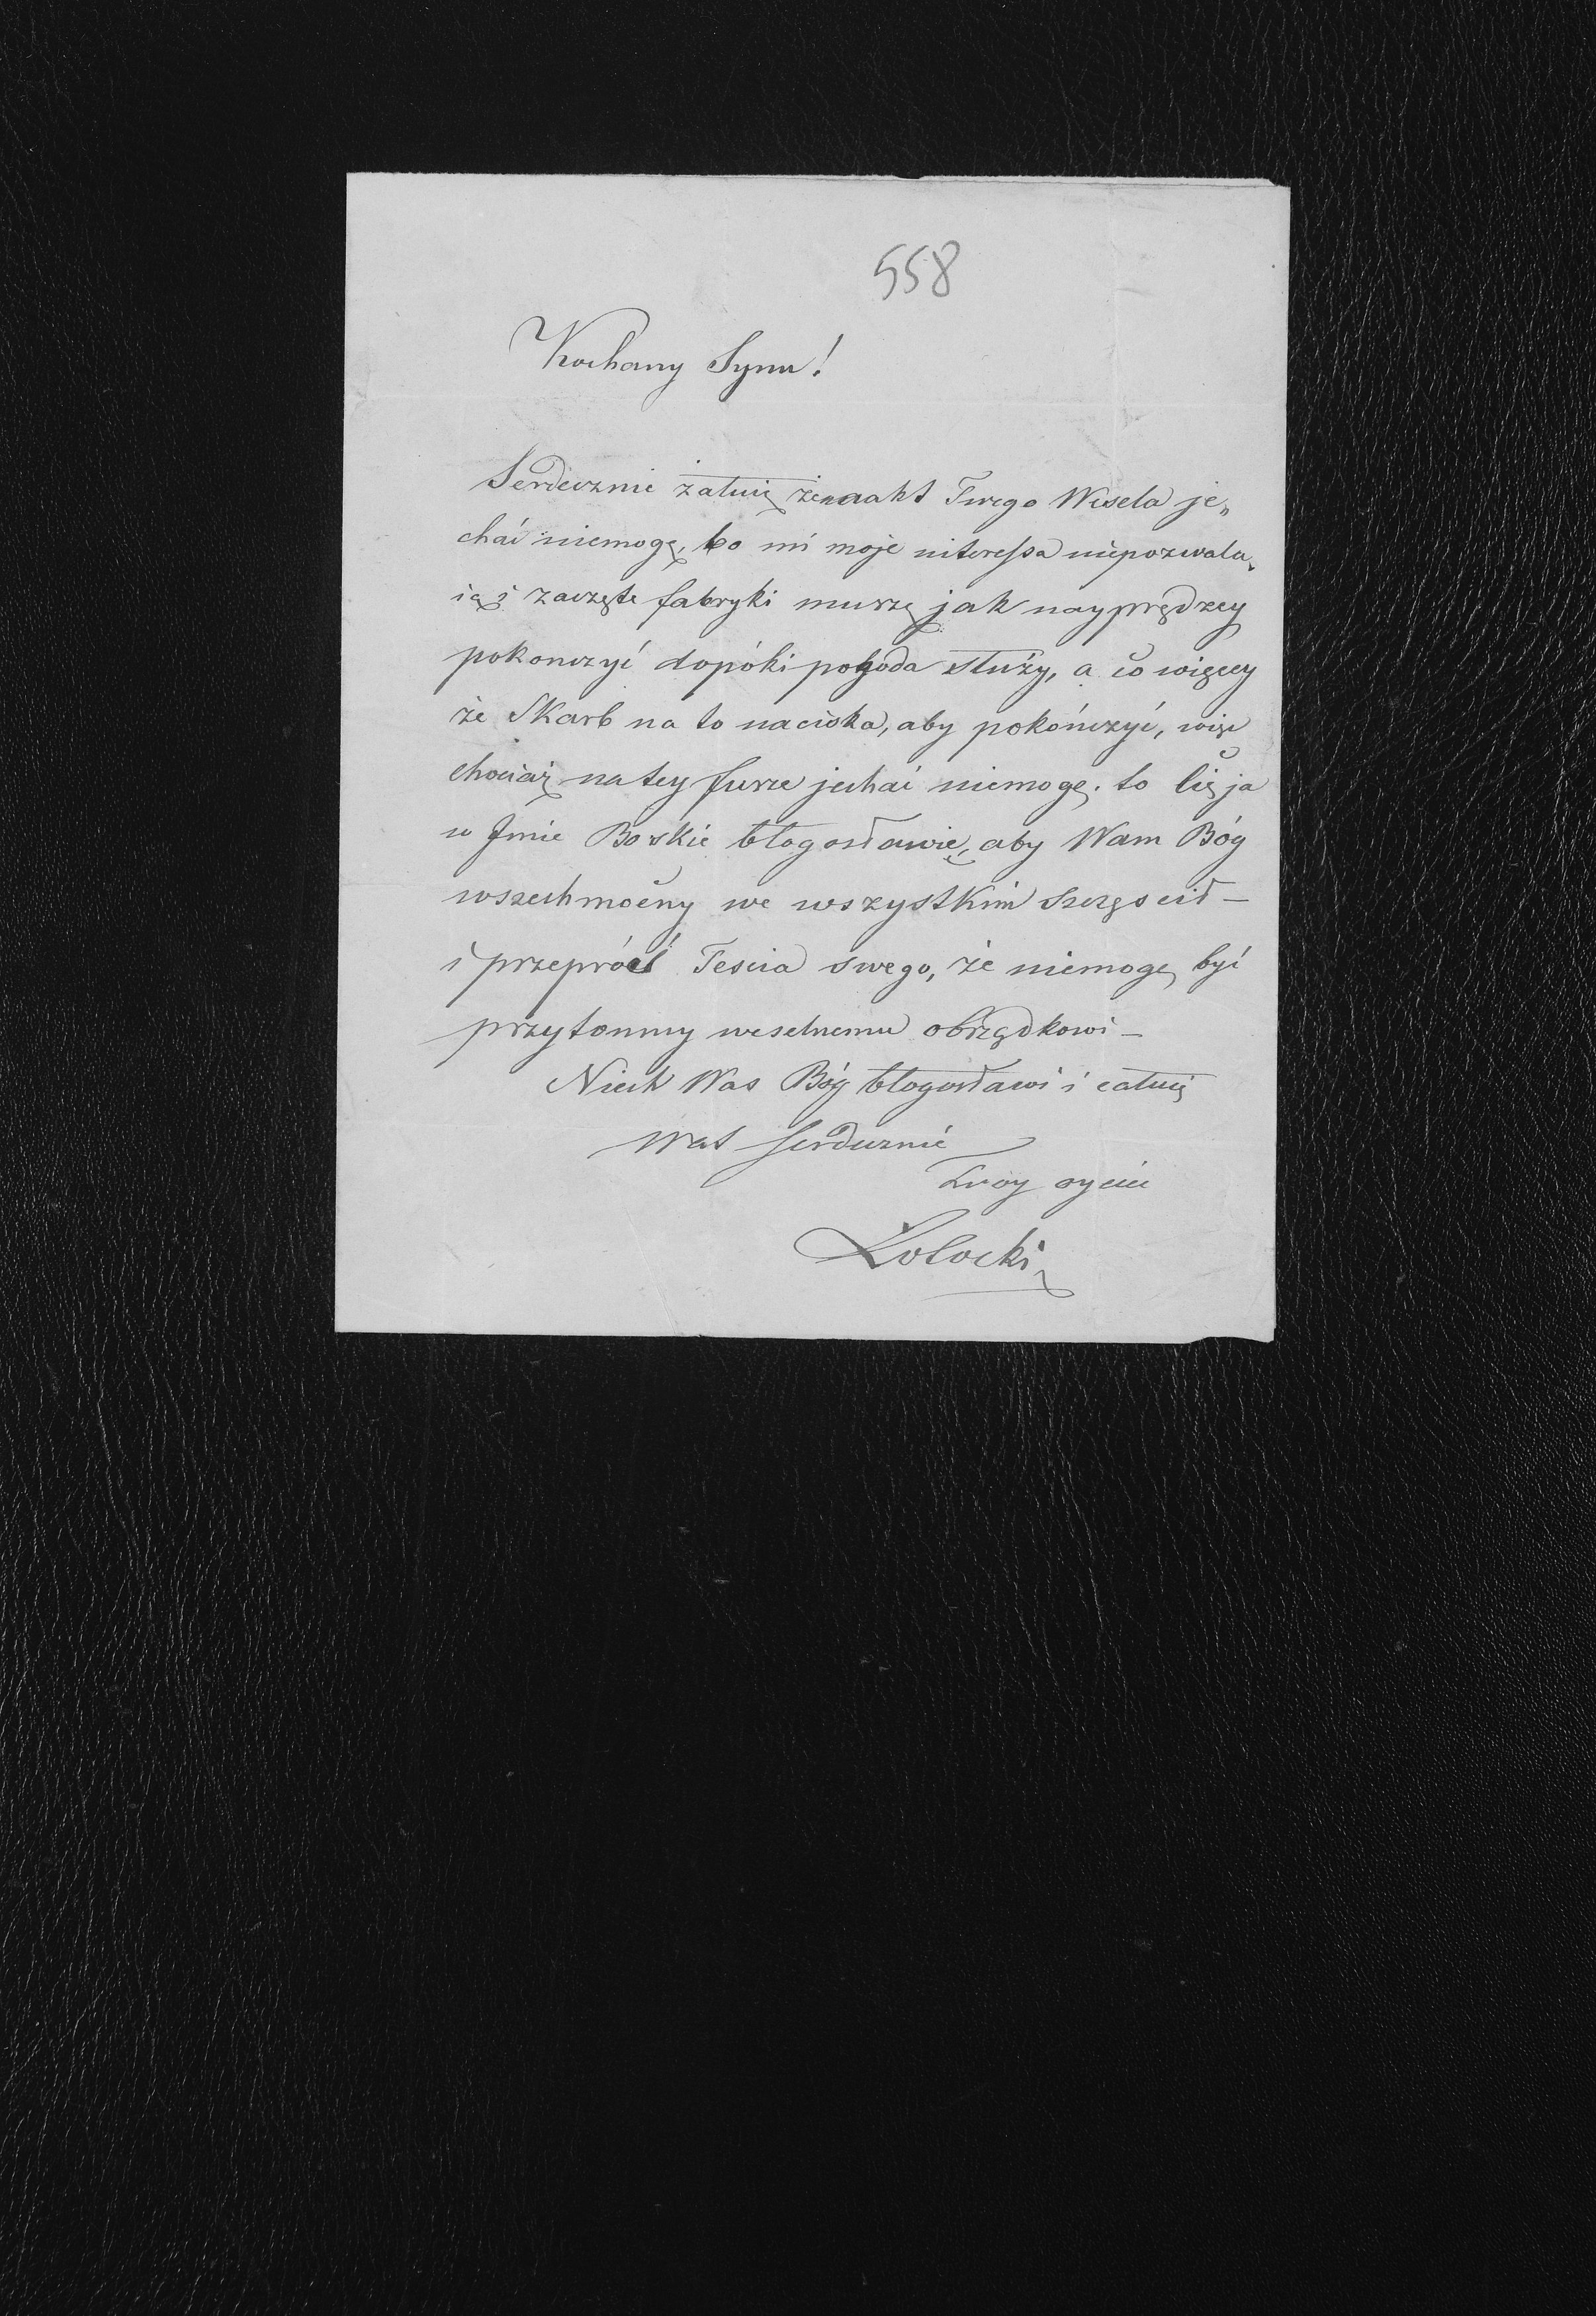 558
Kochany Synu!
Serdecznie żałuię że na akt Twego Wesela je„
chać niemogę, bo mi moje interessa niepozwala„
ią i zaczęte fabryki muszę jak nayprędzey
pokonczyć dopóki pogoda służy, a co więcey
że Skarb na to naciska, aby pokończyć, więc
chociaż na tey furze jechać niemogę. to Cię ja
w Imie Boskie błogosławię, aby Wam Bóg
wszechmocny we wszystkim szczęscił –
i przeproś Tescia swego, że niemogę być
przytomny weselnemu obrządkowi –
Niech Was Bóg błogosławi i całuię
Was serdecznie
Twoy oyciec